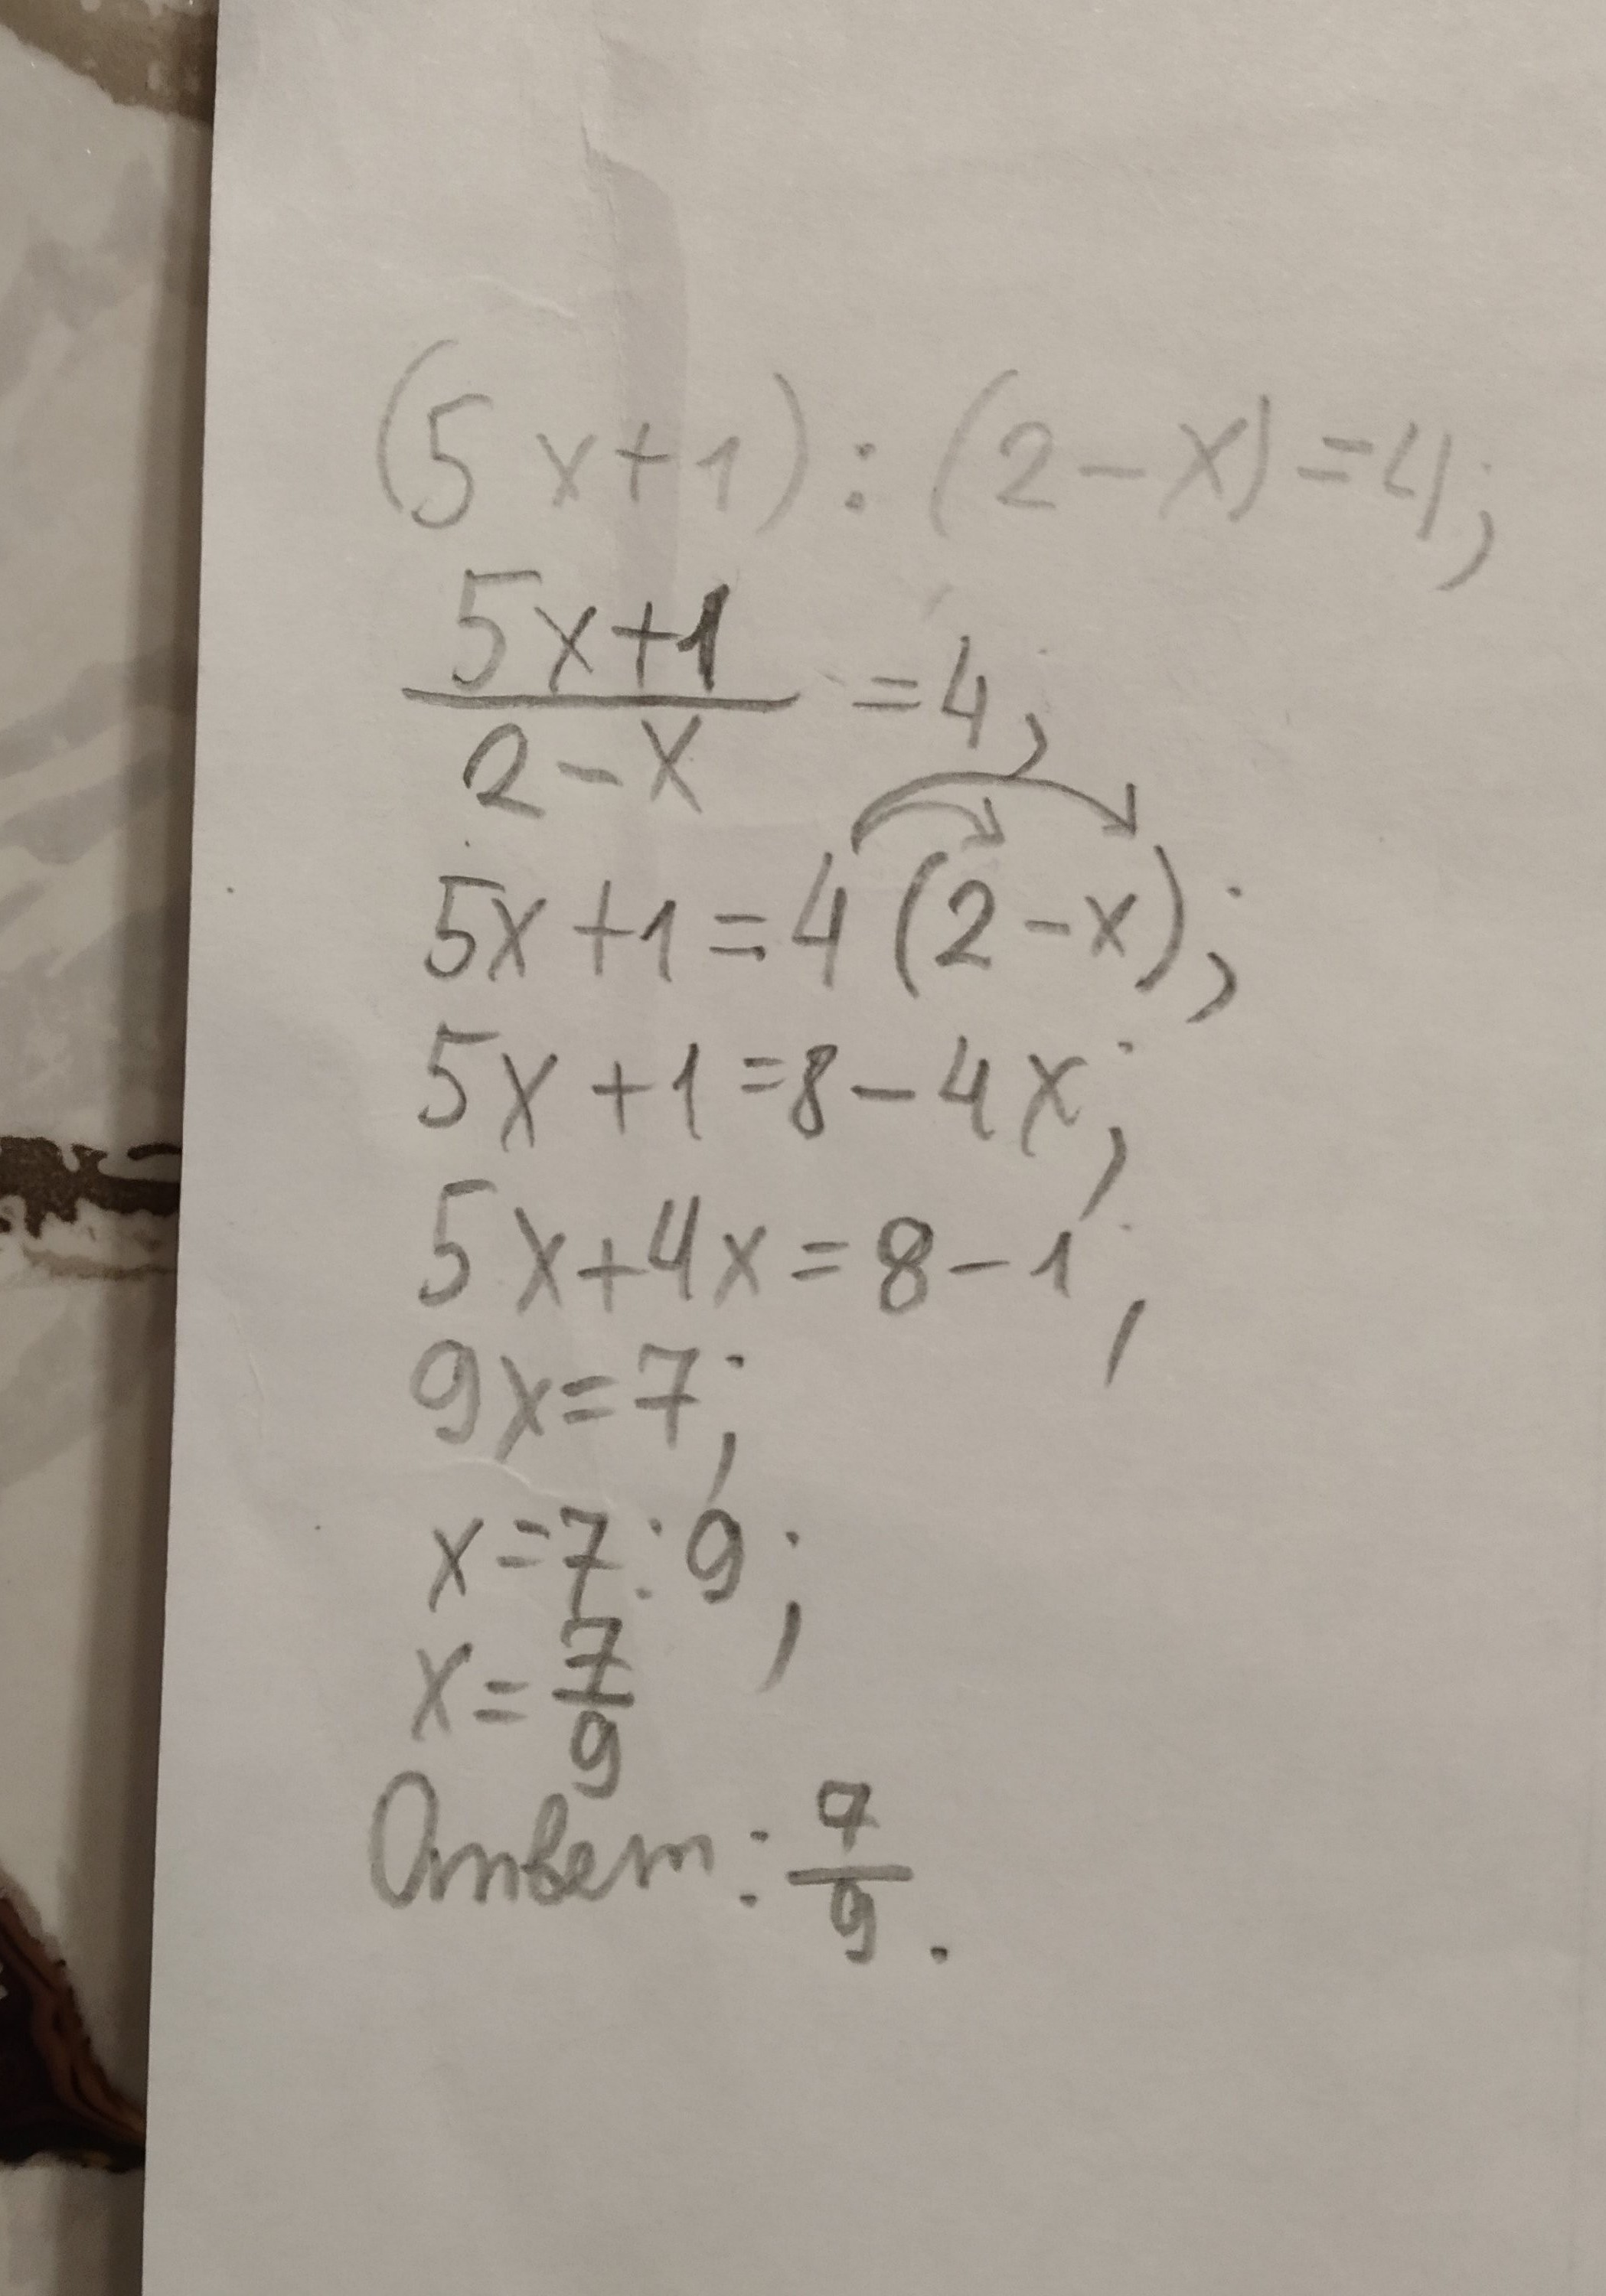 (5x+1):(2-x)=4;
5x+1
2-x
=4;
5x+1=4(2-x);
5x+1=8-4x;
5x+4x=8-1;
9x=7;
x=7:9;
x=7/9
Ответ: 7/9.